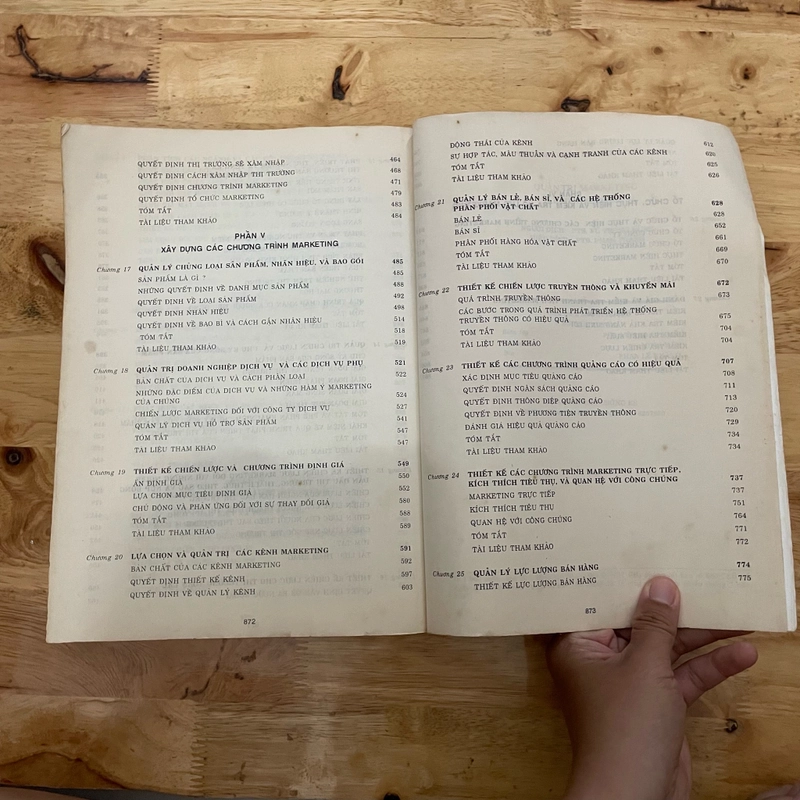 QUYẾT ĐỊNH THỊ TRƯỜNG SẼ XÂM NHẬP 464
QUYẾT ĐỊNH CÁCH XÂM NHẬP THỊ TRƯỜNG 468
QUYẾT ĐỊNH CHƯƠNG TRÌNH MARKETING 471
QUYẾT ĐỊNH TỔ CHỨC MARKETING 479
TÓM TẮT 483
TÀI LIỆU THAM KHẢO 484
PHẦN V
XÂY DỰNG CÁC CHƯƠNG TRÌNH MARKETING
Chương 17 QUẢN LÝ CHỦNG LOẠI SẢN PHẨM, NHÃN HIỆU, VÀ BAO GÓI 485
SẢN PHẨM LÀ GÌ ? 485
NHỮNG QUYẾT ĐỊNH VỀ DANH MỤC SẢN PHẨM 488
QUYẾT ĐỊNH VỀ LOẠI SẢN PHẨM 492
QUYẾT ĐỊNH NHÃN HIỆU 498
QUYẾT ĐỊNH VỀ BAO BÌ VÀ CÁCH GẮN NHÃN HIỆU 514
TÓM TẮT 518
TÀI LIỆU THAM KHẢO 519
Chương 18 QUẢN TRỊ DOANH NGHIỆP DỊCH VỤ VÀ CÁC DỊCH VỤ PHỤ 521
BẢN CHẤT CỦA DỊCH VỤ VÀ CÁCH PHÂN LOẠI 522
NHỮNG ĐẶC ĐIỂM CỦA DỊCH VỤ VÀ NHỮNG HÀM Ý MARKETING
CỦA CHÚNG 524
CHIẾN LƯỢC MARKETING ĐỐI VỚI CÔNG TY DỊCH VỤ 527
QUẢN LÝ DỊCH VỤ HỖ TRỢ SẢN PHẨM 541
TÓM TẮT 547
TÀI LIỆU THAM KHẢO 547
Chương 19 THIẾT KẾ CHIẾN LƯỢC VÀ CHƯƠNG TRÌNH ĐỊNH GIÁ 549
ẤN ĐỊNH GIÁ 550
LỰA CHỌN MỤC TIÊU ĐỊNH GIÁ 552
CHỦ ĐỘNG VÀ PHẢN ỨNG ĐỐI VỚI SỰ THAY ĐỔI GIÁ 586
TÓM TẮT 588
TÀI LIỆU THAM KHẢO 589
Chương 20 LỰA CHỌN VÀ QUẢN TRỊ CÁC KÊNH MARKETING 591
BẢN CHẤT CỦA CÁC KÊNH MARKETING 592
QUYẾT ĐỊNH THIẾT KẾ KÊNH 597
QUYẾT ĐỊNH VỀ QUẢN LÝ KÊNH 603
872
ĐỘNG THÁI CỦA KÊNH 612
SỰ HỢP TÁC, MÂU THUẪN VÀ CẠNH TRANH CỦA CÁC KÊNH 620
TÓM TẮT 625
TÀI LIỆU THAM KHẢO 626
Chương 21 QUẢN LÝ BÁN LẺ, BÁN SỈ, VÀ CÁC HỆ THỐNG
PHÂN PHỐI VẬT CHẤT 628
BÁN LẺ 628
BÁN SỈ 652
PHÂN PHỐI HÀNG HÓA VẬT CHẤT 661
TÓM TẮT 669
TÀI LIỆU THAM KHẢO 670
Chương 22 THIẾT KẾ CHIẾN LƯỢC TRUYỀN THÔNG VÀ KHUYẾN MÃI 672
QUÁ TRÌNH TRUYỀN THÔNG 673
CÁC BƯỚC TRONG QUÁ TRÌNH PHÁT TRIỂN HỆ THỐNG
TRUYỀN THÔNG CÓ HIỆU QUẢ 675
TÓM TẮT 704
TÀI LIỆU THAM KHẢO 704
Chương 23 THIẾT KẾ CÁC CHƯƠNG TRÌNH QUẢNG CÁO CÓ HIỆU QUẢ 707
XÁC ĐỊNH MỤC TIÊU QUẢNG CÁO 708
QUYẾT ĐỊNH NGÂN SÁCH QUẢNG CÁO 711
QUYẾT ĐỊNH THÔNG ĐIỆP QUẢNG CÁO 713
QUYẾT ĐỊNH VỀ PHƯƠNG TIỆN TRUYỀN THÔNG 720
ĐÁNH GIÁ HIỆU QUẢ QUẢNG CÁO 729
TÓM TẮT 734
TÀI LIỆU THAM KHẢO 734
Chương 24 THIẾT KẾ CÁC CHƯƠNG TRÌNH MARKETING TRỰC TIẾP,
KÍCH THÍCH TIÊU THỤ, VÀ QUAN HỆ VỚI CÔNG CHÚNG 737
MARKETING TRỰC TIẾP 737
KÍCH THÍCH TIÊU THỤ 751
QUAN HỆ VỚI CÔNG CHÚNG 764
TÓM TẮT 771
TÀI LIỆU THAM KHẢO 772
Chương 25 QUẢN LÝ LỰC LƯỢNG BÁN HÀNG 774
THIẾT KẾ LỰC LƯỢNG BÁN HÀNG 775
873